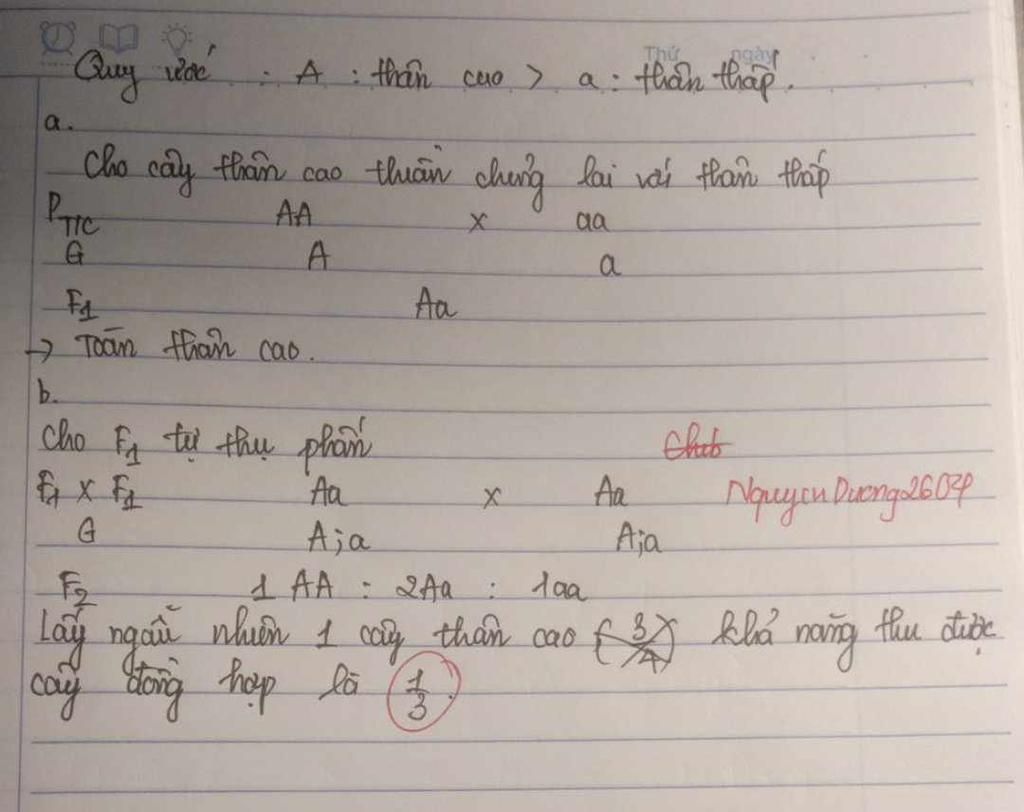 Thứ ngày
Quy ước : A : thân cao > a : thân thấp.
a.
Cho cây thân cao thuần chủng lai với thân thấp
P T/C AA x aa
G A a
F1 Aa
→ Toàn thân cao.
b.
Cho F1 tự thụ phấn
F1 x F1 Aa x Aa NguyenDuong2604
G A;a A;a
F2 1 AA : 2Aa : 1aa
Lấy ngẫu nhiên 1 cây thân cao (3/4) khả năng thu được
cây đồng hợp là 1/3.